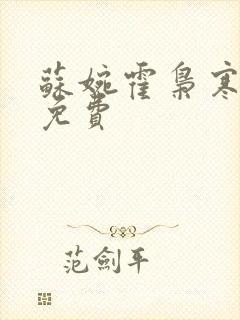 蘇婉霍梟寒
免費
范劍平